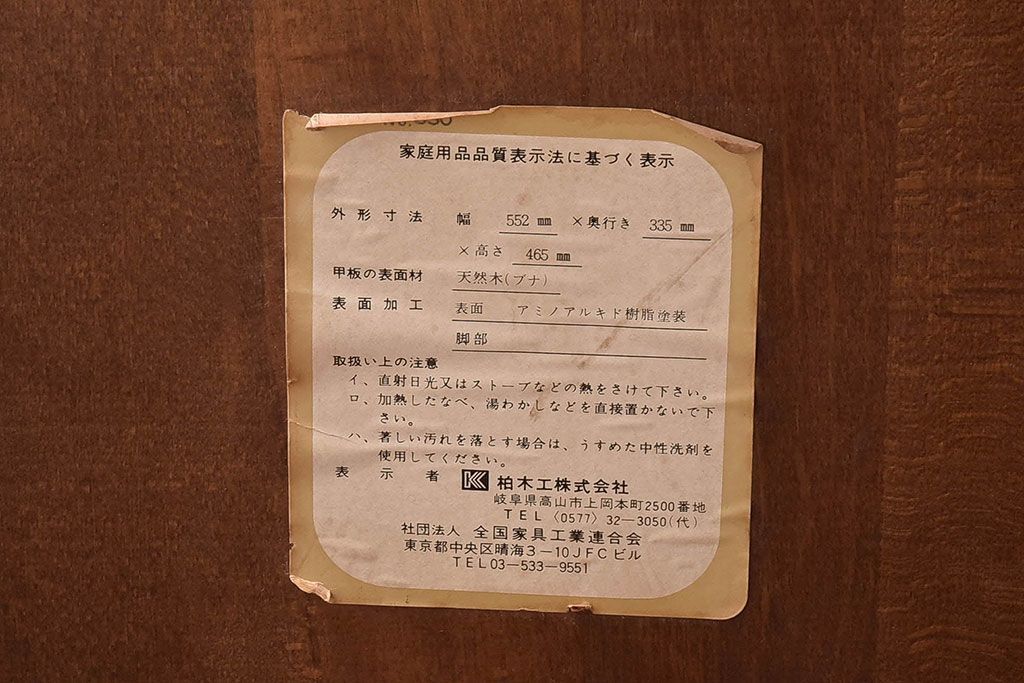 家庭用品品質表示法に基づく表示
外形寸法 幅 552 ㎜ ×奥行き 335 ㎜
×高さ 465 ㎜
甲板の表面材 天然木(ブナ)
表面加工 表面 アミノアルキド樹脂塗装
脚部
取扱い上の注意
イ、直射日光又はストーブなどの熱をさけて下さい。
ロ、加熱したなべ、湯わかしなどを直接置かないで下
さい。
ハ、著しい汚れを落とす場合は、うすめた中性洗剤を
使用してください。
表示者 柏木工株式会社
岐阜県高山市上岡本町2500番地
TEL〈0577〉32―3050(代)
社団法人 全国家具工業連合会
東京都中央区晴海3―10JFCビル
TEL03―533―9551